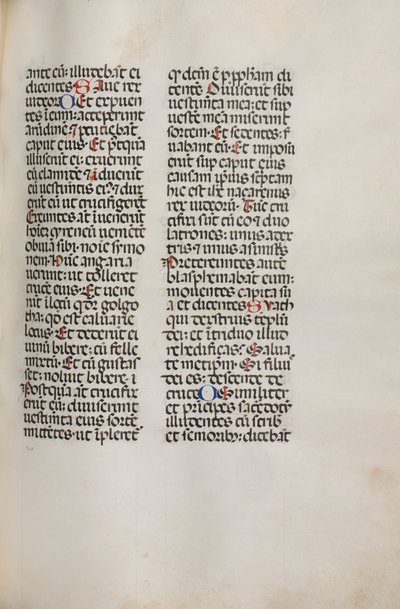 ante eū: illudebāt ei
dicentes: Aue rex
iudeoꝝ Et expuen
tes ī eum: acceperunt
arūdinē ⁊ ꝑcutiebāt
caput eius. Et pꝰtꝙ̄
illuserūt ei: exuerunt
eū clamide: ⁊ īduerūt
eū uestimētis eiꝰ: ⁊ dux
erūt eū ut crucifigerēt
Exeuntes aūt īuenerūt
hoīeꝫ cyreneū uenientē
obuiā sibi: noīe symo
nem. Hunc angaria
uerunt: ut tolleret
crucē eius. Et uene
rūt ī locū qui dr̄ golgo
tha: qd̓ est caluarie
locus. Et dederūt ei
uinū bibere: cū felle
mixtū. Et cū gustas
set: noluit bibere.
Postꝙ̄ aūt crucifix
erūt eū: diuiserunt
uestimēta eius sortē
mittētes: ut īpleretꝰ
qd̓ dictū ē ꝑ ꝓphetam di
centē: Diuiserūt sibi
uestimēta mea: et sup
uestē meā miserunt
sortem. Et sedentes: ẜ
uabant eū. Et imposu
erūt sup caput eius
causam ipsius sc̄ptam
hic est ihs nazarenus
rex iudeorū. Tunc cru
cifixi sūt cū eo ⁊ duo
latrones: unus a dex
tris ⁊ unus a sinistris
Pretereuntes autē
blasphemabāt eum:
mouentes capita su
a et dicentes: Vach
qui destruis tēplū
dei: et ī triduo illud
rehedificas: Salua
temetipm̄. Si filius
dei es: descende de
cruce Similiter
et prīcipes sacerdotū
illudentes cū scrib
et seniorib: dicebāt